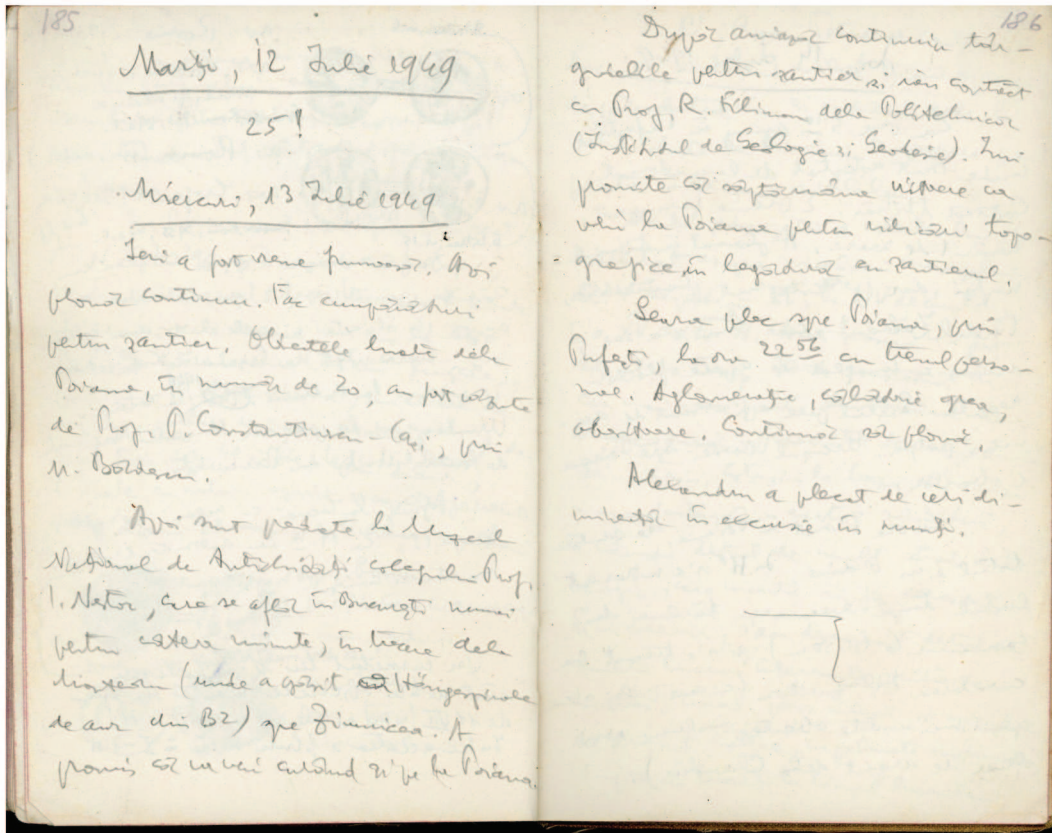 185
Marți, 12 Iulie 1949
25!
Miercuri, 13 Iulie 1949
Ieri a fost vreme frumoasă. Azi
plouă continuu. Fac cumpărături
pentru șantier. Obiectele luate dela
Poiana, în număr de 20, au fost văzute
de Prof. P. Constantinescu-Iași, prin
N.
Apoi sunt predate la Muzeul
Național de Antichități colegului Prof.
I. Nestor, care se află în București numai
pentru câteva minute, în trecere dela
(unde a găsit
de aur din B2) spre Zimnicea. A
promis că va veni curând și pe la Poiana.
186
După amiază continuiu târ-
guielile pentru șantier și iau contact
cu Prof. R. Filimon dela Politehnică
(Institutul de Geologie și Geodesie). Îmi
promite că săptămâna viitoare va
veni la Poiana pentru ridicări topo-
grafice, în legătură cu șantierul.
Seara plec spre Poiana, prin
Pufești, la ora 22 56 cu trenul perso-
nal. Aglomerație, călătorie grea,
obositoare. Continuă să plouă.
Alexandru a plecat de ieri di-
mineață în excursie în munți.